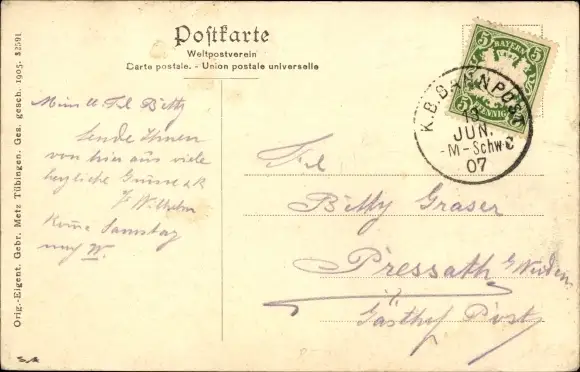 Postkarte
Weltpostverein
Carte postale. - Union postale universelle
5 BAYERN 5
5 PFENNIG
K.B.BAHNPOST
13
JUN.
-M-Schw
07
Orig.-Eigent. Gebr. Metz Tübingen. Ges. gesch. 1905. 32591
Mein lb Frl Betty
Sende Ihnen
von hier aus viele
herzliche Grüsse
Wilhelm
Komme Samstag
nach W.
Frl
Betty Graser
Pressath b/ Weiden
Gasthof Post